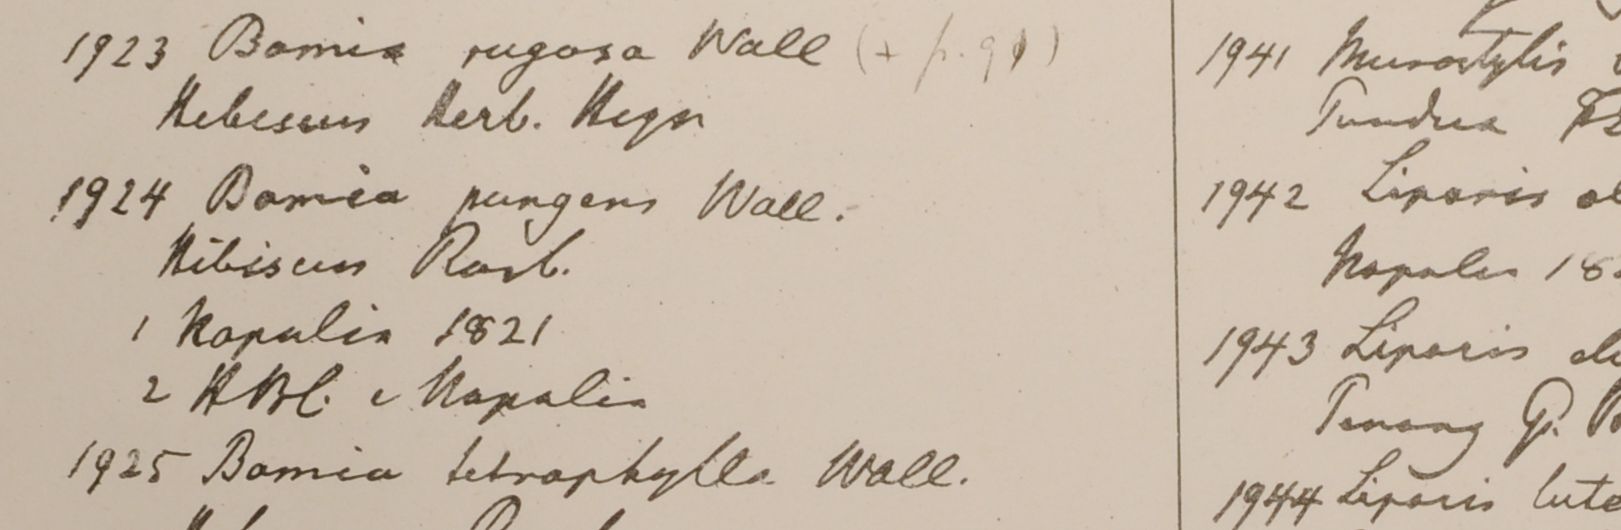 1923 Bamia rugosa Wall (+ p. 91)
Hibiscus Herb. Heyn
1924 Bamia pungens Wall.
Hibiscus Roxb.
1 Napalia 1821
2 HBC. e Napalia
1925 Bamia tetraphylla Wall.
1941
Tundua
1942 Liparis
Napalia 18
1943 Liparis
Penang G.
1944 Liparis lute